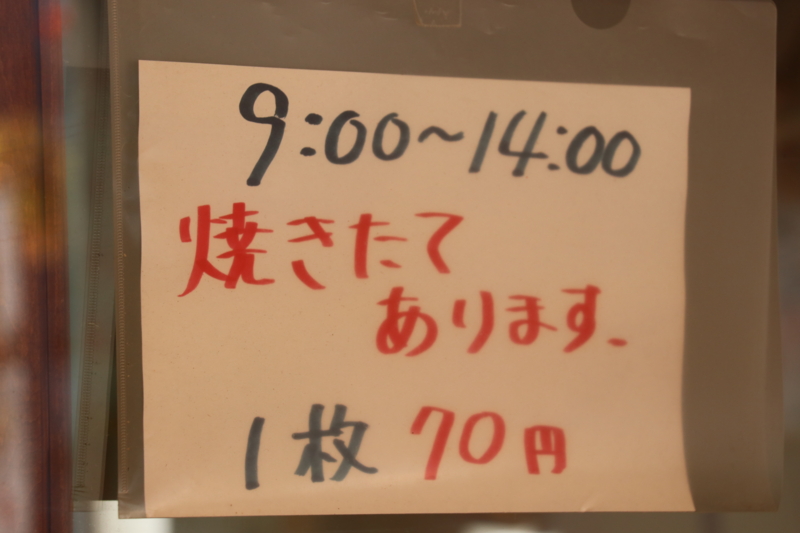 9:00~14:00
焼きたて
あります.
1枚 70円